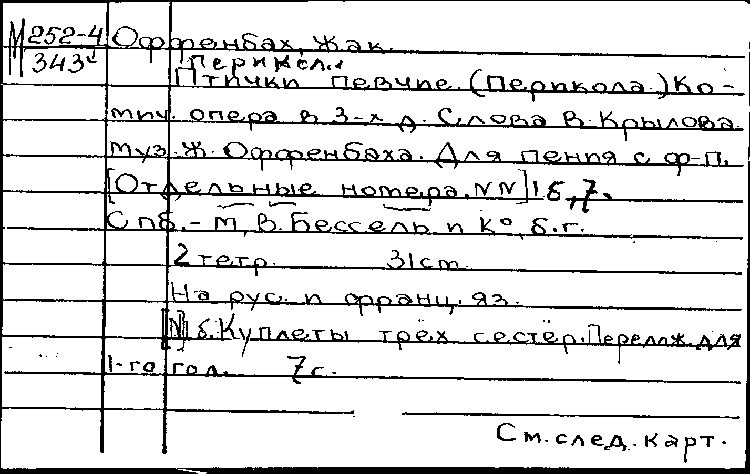 М 252-4 Оффенбах, Жак.
343
Птички певчие. (Перикола.) Ко-
мич. опера в 3-х д. Слова В. Крылова
муз. Ж. Оффенбаха. Для пения с ф-п.
[Отдельные номера. NN] 1б, 7.
Спб. - М, В. Бессель и К°, б. г.
2 тетр. 31 cm
На рус. и франц. яз.
[N] 1б. Куплеты трёх сестёр. Перелож. для
1-го гол. 7 с.
См. след. карт.